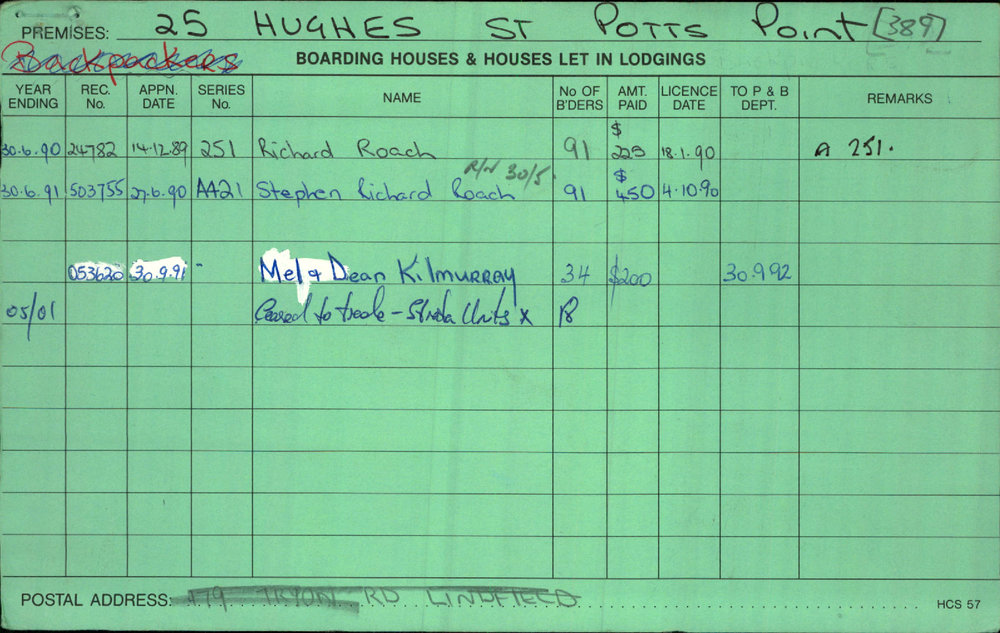 PREMISES: 25 HUGHES ST POTTS Point [389]
Backpackers BOARDING HOUSES & HOUSES LET IN LODGINGS
YEAR ENDING REC. No. APPN. DATE SERIES No. NAME No OF B'DERS AMT. PAID LICENCE DATE TO P & B DEPT. REMARKS
30.6.90 24782 14.12.89 251 Richard Roach 91 $ 225 18.1.90 A 251.
R/N 30/5.
30.6.91 503755 27.6.90 A421 Stephen Richard Roach 91 $ 450 4.10.90
053620 30.9.91 " Mel & Dean KilMURRAY 34 $200 30.9.92
05/01 Ceased to trade - Strata Units x 18
POSTAL ADDRESS: 179 TRYON RD LINDFIELD
HCS 57